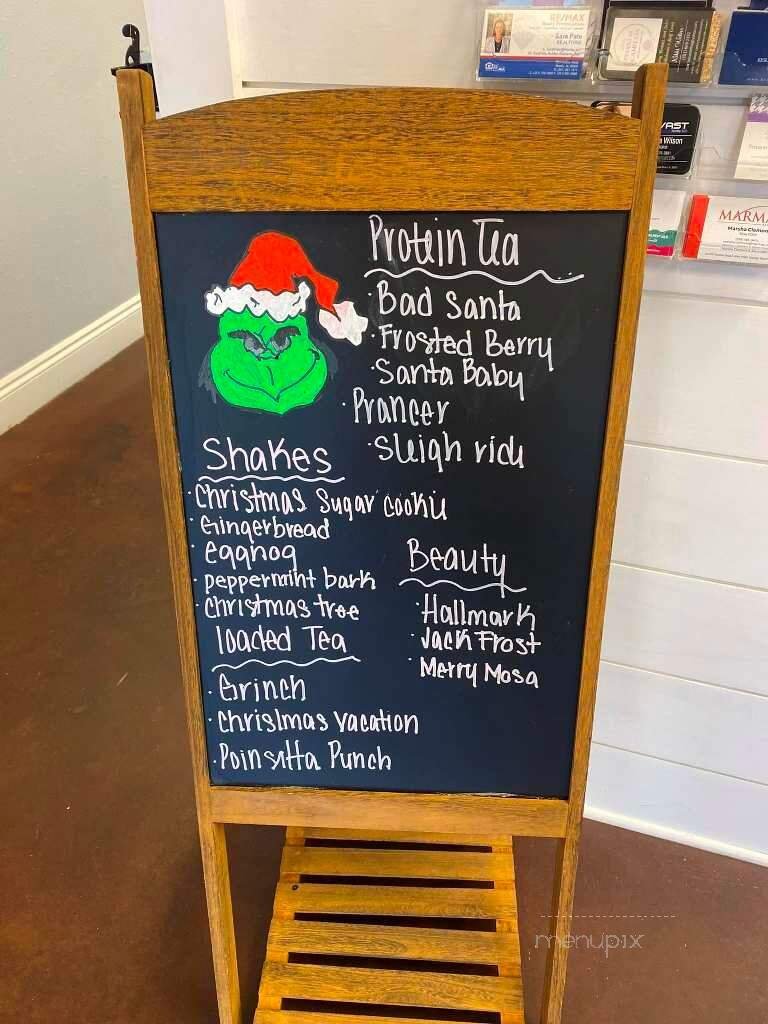 RE/MAX
Sara Pate
VAST
Wilson
MARMA
Protein Tea
· Bad Santa
· Frosted Berry
· Santa Baby
· Prancer
· Sleigh ride
Shakes
· Christmas Sugar cookie
· Gingerbread
· eggnog
· peppermint bark
· christmas tree
Beauty
· Hallmark
· Jack Frost
· Merry Mosa
loaded Tea
· Grinch
· christmas vacation
· Poinsetta Punch
menupix